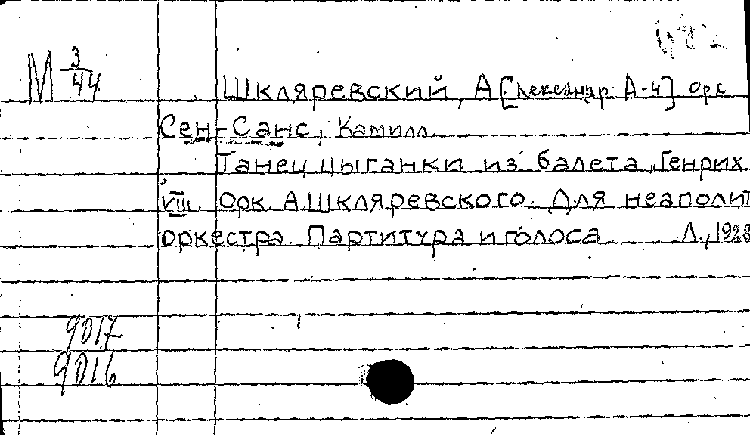 М 3/44
Шкляревский, А[лександр А-ч] орк
Сен-Санс, Камилл
Танец цыганки из балета „Генрих
VIII. Орк. А.Шкляревского. Для неаполит
оркестра. Партитура и голоса Л., 1928
9017
9016